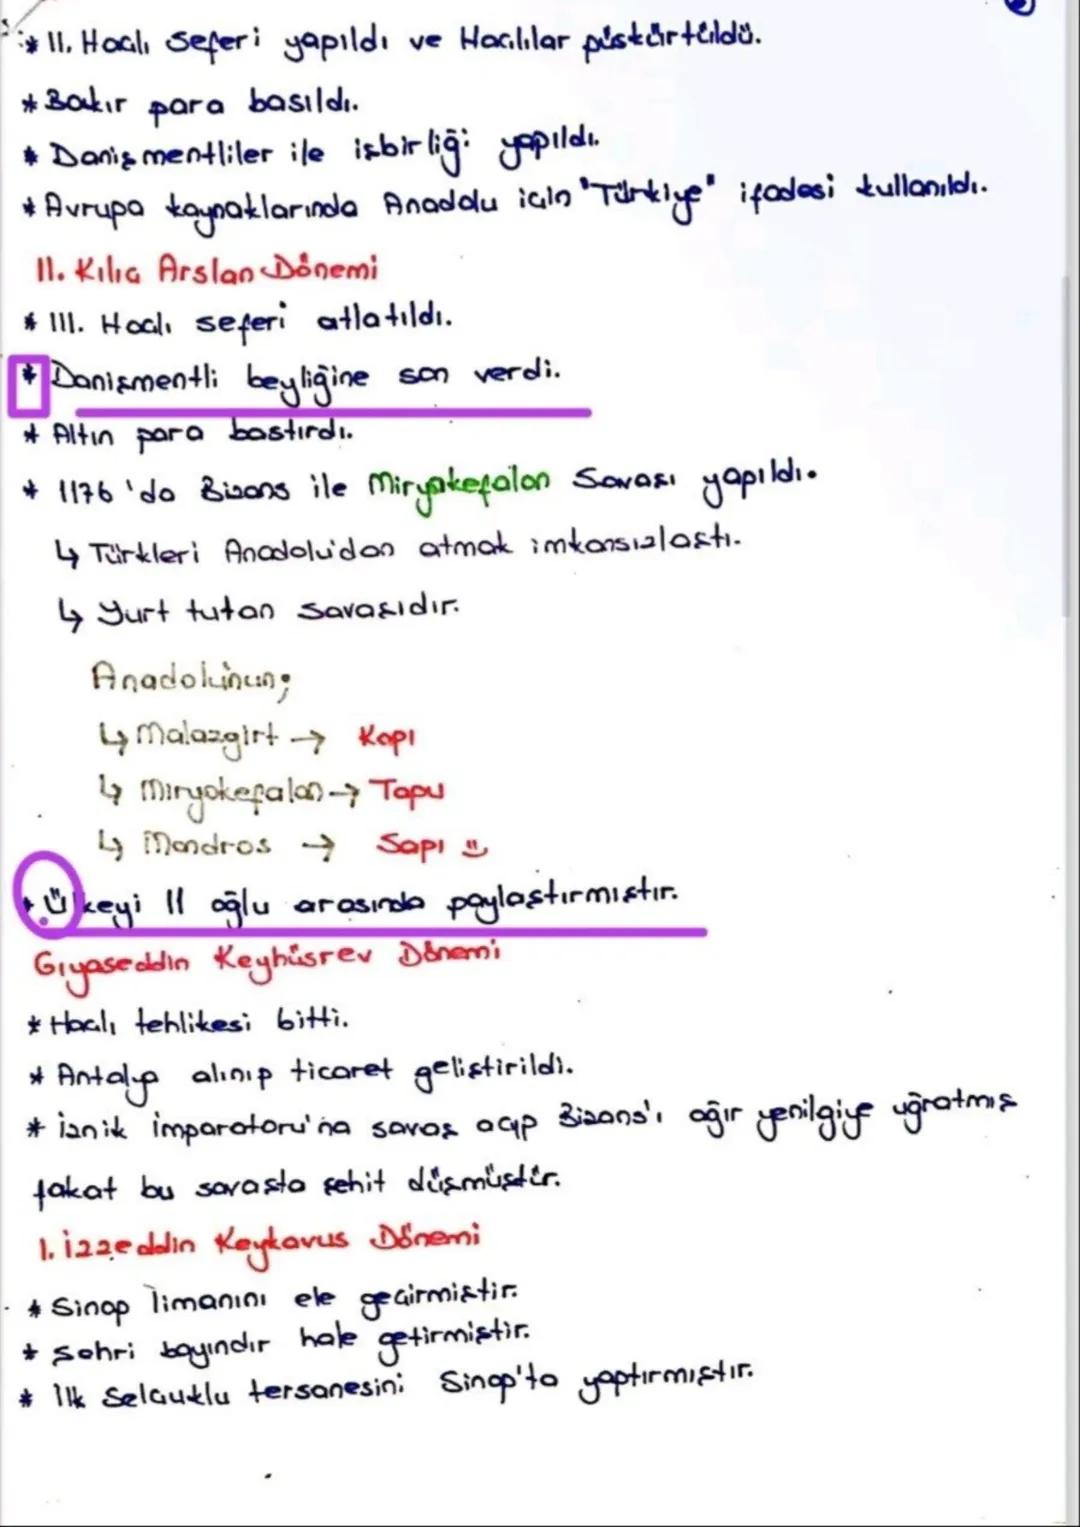 * II. Haçlı Seferi yapıldı ve Haçlılar püskürtüldü.
* Bakır para basıldı.
* Danişmentliler ile işbirliği yapıldı.
* Avrupa kaynaklarında Anadolu için "Türkiye" ifadesi kullanıldı.
II. Kılıç Arslan Dönemi
* III. Haçlı seferi atlatıldı.
* Danişmentli beyliğine son verdi.
* Altın para bastırdı.
* 1176'da Bizans ile Miryakefalon Savaşı yapıldı.
↳ Türkleri Anadolu'dan atmak imkansızlaştı.
↳ Yurt tutan savaşıdır.
Anadolunun;
↳ Malazgirt → Kapı
↳ Miryokefalon → Tapu
↳ Mondros → Sapı
* Ülkeyi 11 oğlu arasında paylaştırmıştır.
Gıyaseddin Keyhüsrev Dönemi
* Haçlı tehlikesi bitti.
* Antalya alınıp ticaret geliştirildi.
* İznik İmparatoru'na savaş açıp Bizans'ı ağır yenilgiye uğratmış
fakat bu savaşta şehit düşmüştür.
I. İzzeddin Keykavus Dönemi
* Sinop limanını ele geçirmiştir.
* Şehri bayındır hale getirmiştir.
* İlk Selçuklu tersanesini Sinop'ta yaptırmıştır.